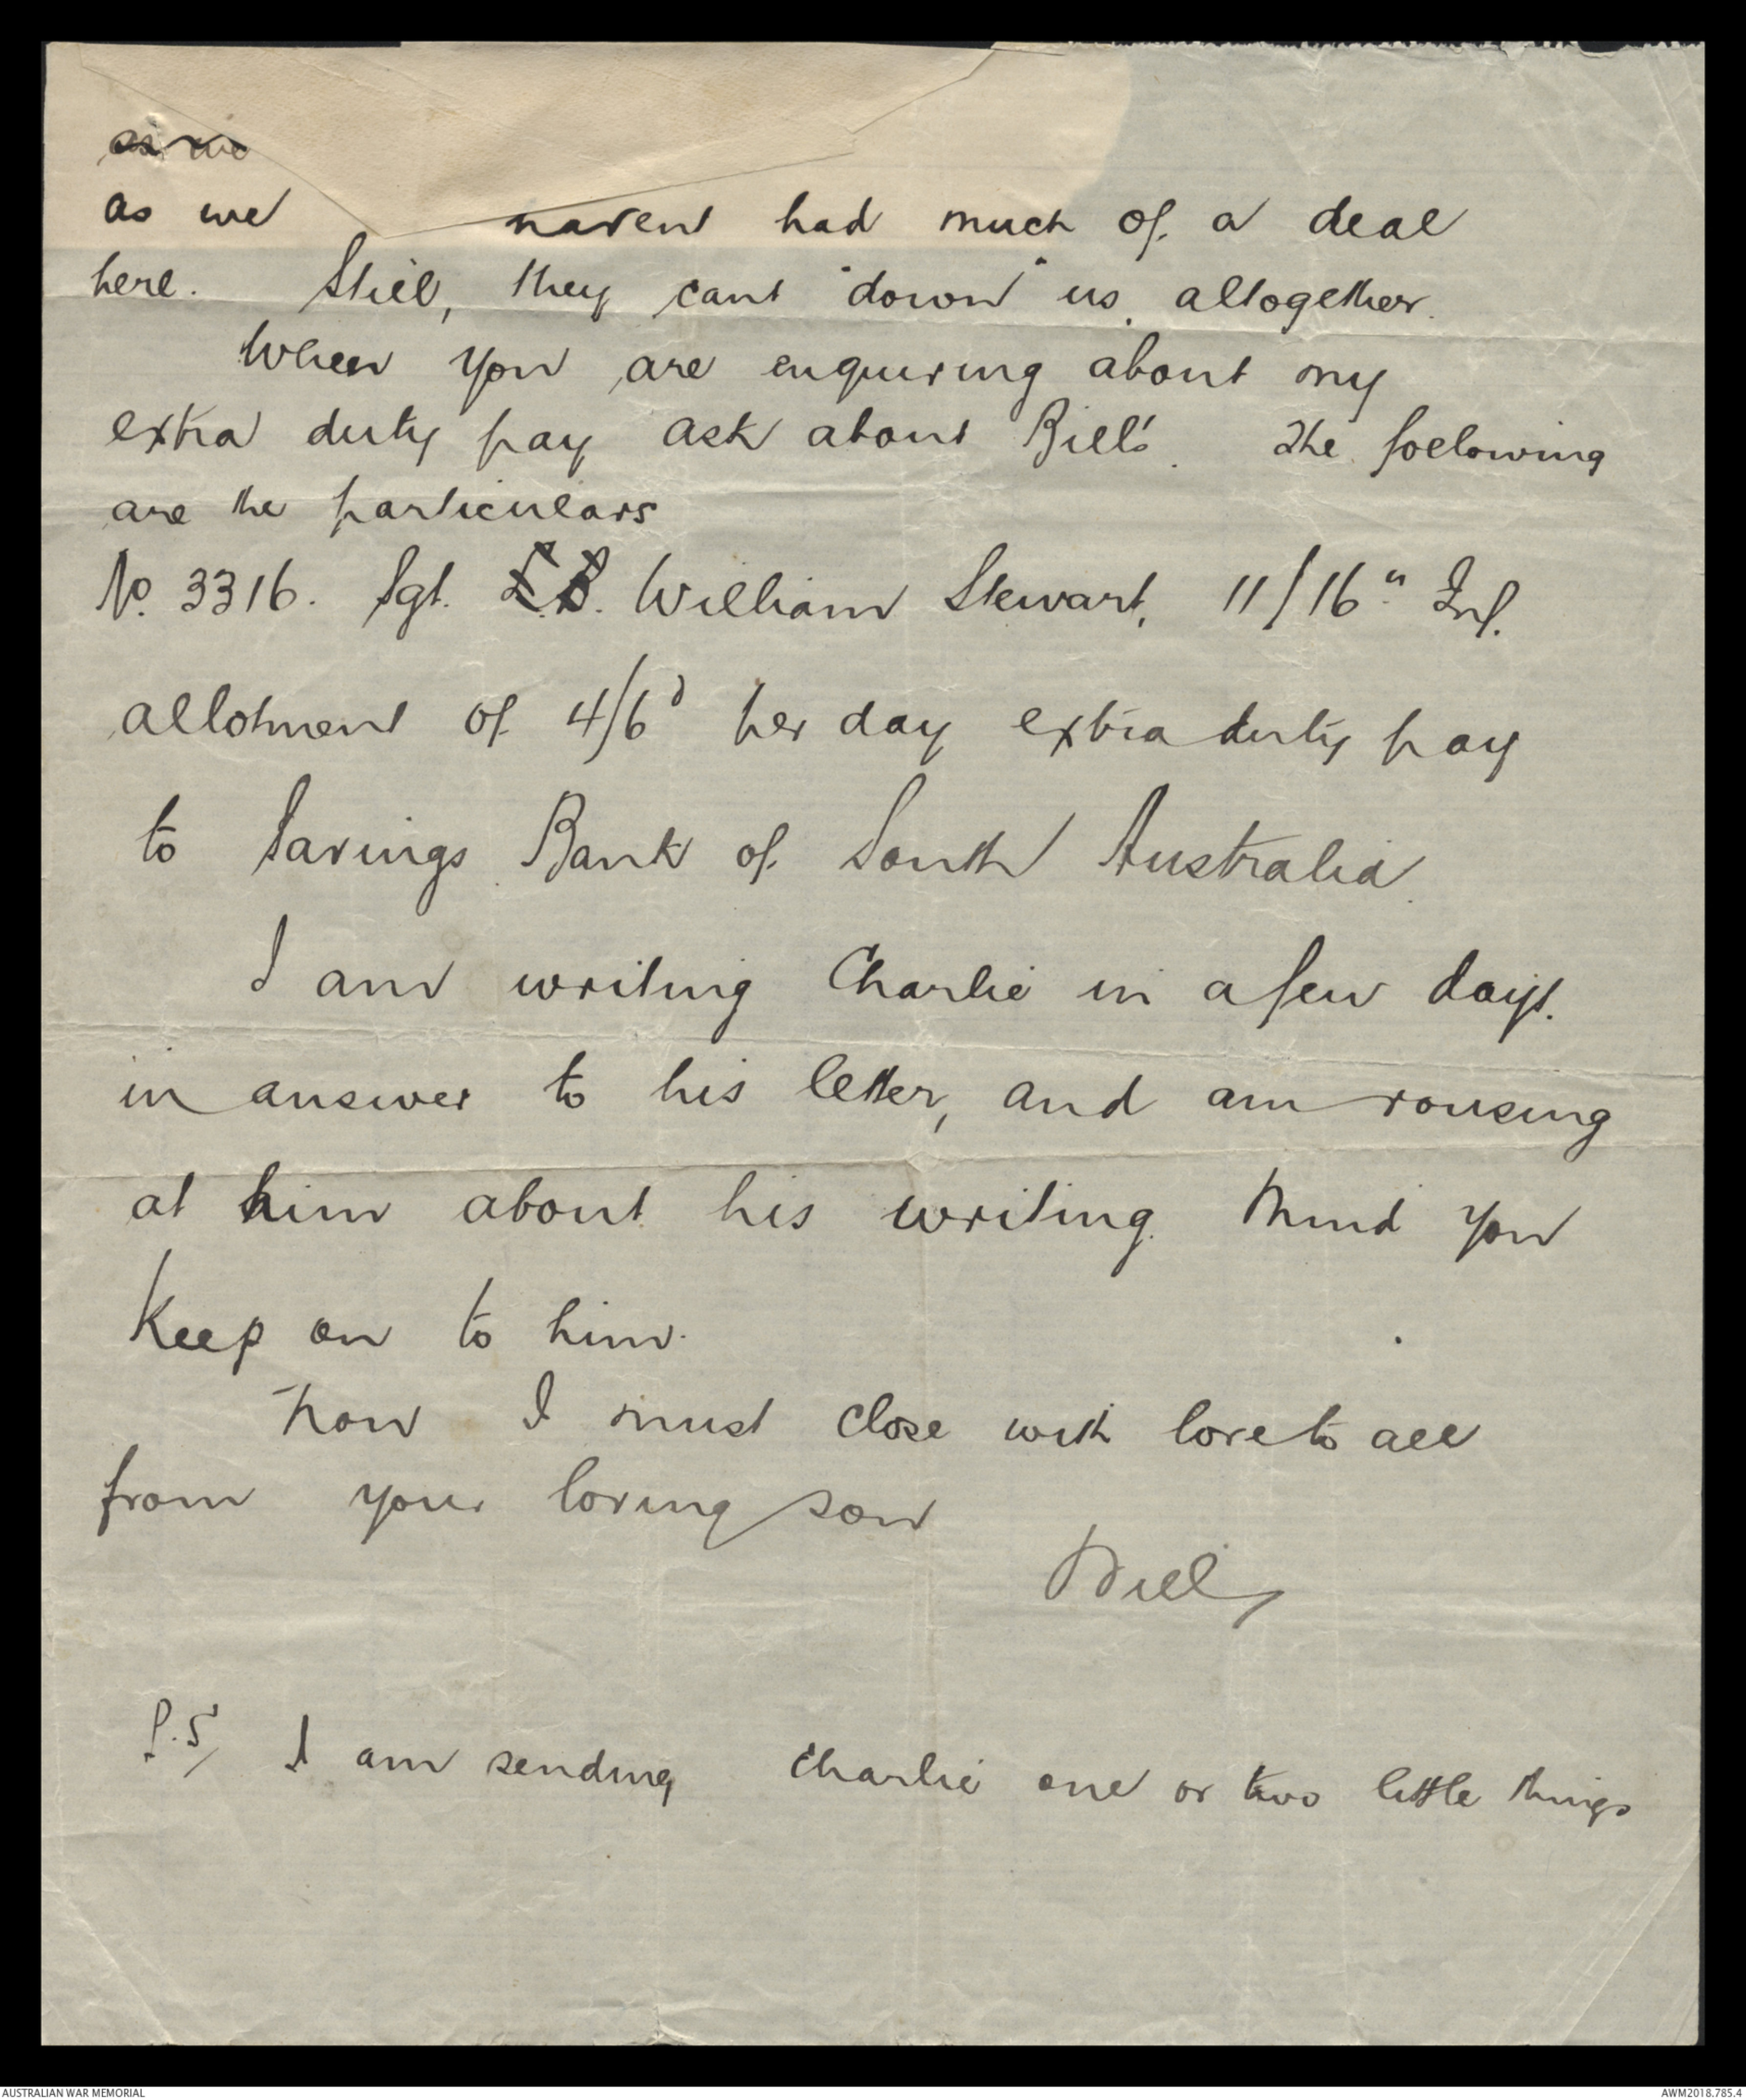 as we
as we havent had much of a deal
here. Still, they cant "down" us altogether.
When you are enquiring about my
extra duty pay ask about Bill's. The following
are the particulars
No. 3316. Sgt. William Stewart, 11/16" Inf.
allotment of 4/6d per day extra duty pay
to Savings Bank of South Australia.
I am writing Charlie in a few days.
in answer to his letter, and am rousing
at him about his writing. Mind you
keep on to him.
Now I must close with love to all
from your loving son
Will
P.S, I am sending Charlie one or two little things
AUSTRALIAN WAR MEMORIAL
AWM2018.785.4